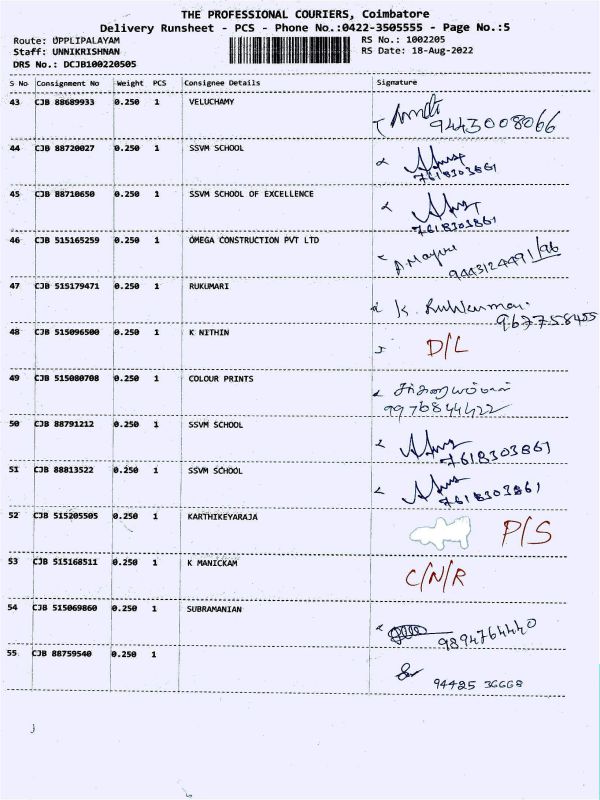 THE PROFESSIONAL COURIERS, Coimbatore
Delivery Runsheet - PCS - Phone No.:0422-3505555 - Page No.:5
Route: UPPLIPALAYAM RS No.: 1002205
Staff: UNNIKRISHNAN RS Date: 18-Aug-2022
DRS No.: DCJB100220505
S No Consignment No Weight PCS Consignee Details Signature
43 CJB 88689933 0.250 1 VELUCHAMY
9443008066
44 CJB 88720027 0.250 1 SSVM SCHOOL
7618303861
45 CJB 88710650 0.250 1 SSVM SCHOOL OF EXCELLENCE
7618303861
46 CJB 515165259 0.250 1 OMEGA CONSTRUCTION PVT LTD
9443124491/96
47 CJB 515179471 0.250 1 RUKUMARI
K.
9677758455
48 CJB 515096500 0.250 1 K NITHIN D/L
49 CJB 515080708 0.250 1 COLOUR PRINTS
9976844422
50 CJB 88791212 0.250 1 SSVM SCHOOL
7618303861
51 CJB 88813522 0.250 1 SSVM SCHOOL
7618303861
52 CJB 515205505 0.250 1 KARTHIKEYARAJA P/S
53 CJB 515168511 0.250 1 K MANICKAM C/N/R
54 CJB 515069860 0.250 1 SUBRAMANIAN
9894764440
55 CJB 88759540 0.250 1
94425 36668